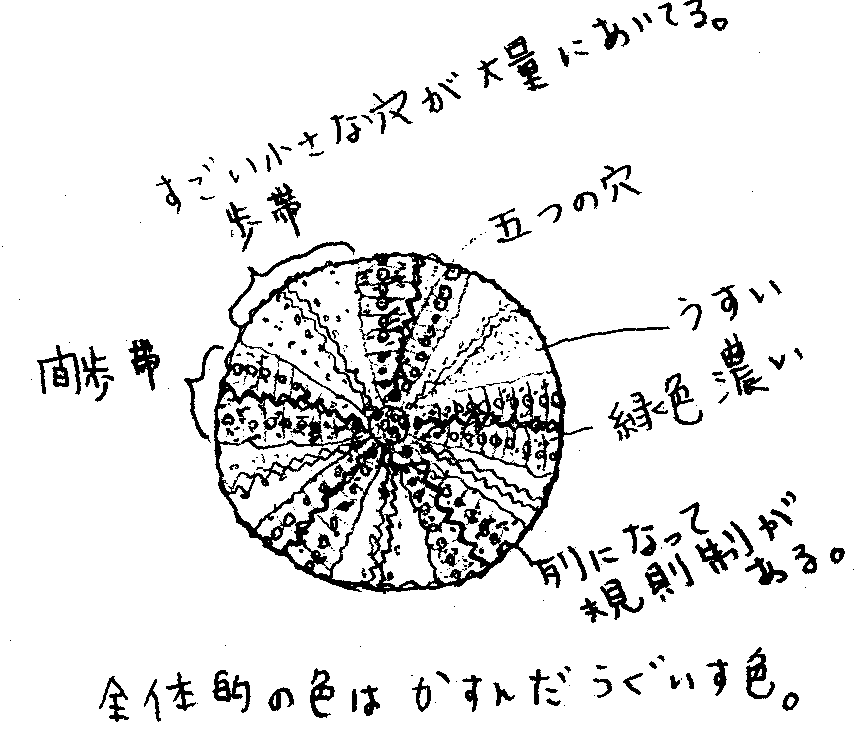 すごい小さな穴が大量にあいてる。
歩帯
五つの穴
うすい
間歩帯
緑色濃い
列になって
規則制が
ある。
全体的の色はかすんだうぐいす色。